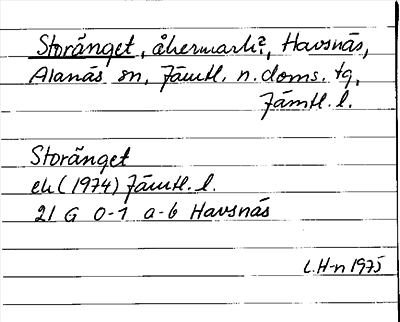 Storänget, åkermark?, Havsnäs,
Alanäs sn, Jämtl. n. doms. tg,
Jämtl. l.
Storänget
ek (1974) Jämtl. l.
21 G 0-1 a-b Havsnäs
L.H-n 1975